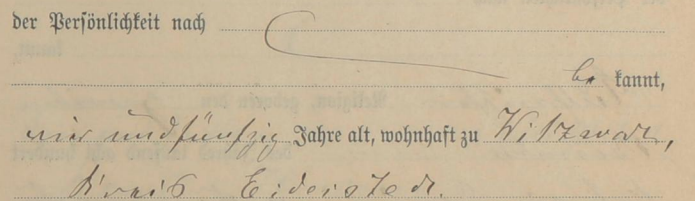 der Persönlichkeit nach
be kannt,
vier und fünfzig Jahre alt, wohnhaft zu Witzwort,
Kreis Eiderstedt.